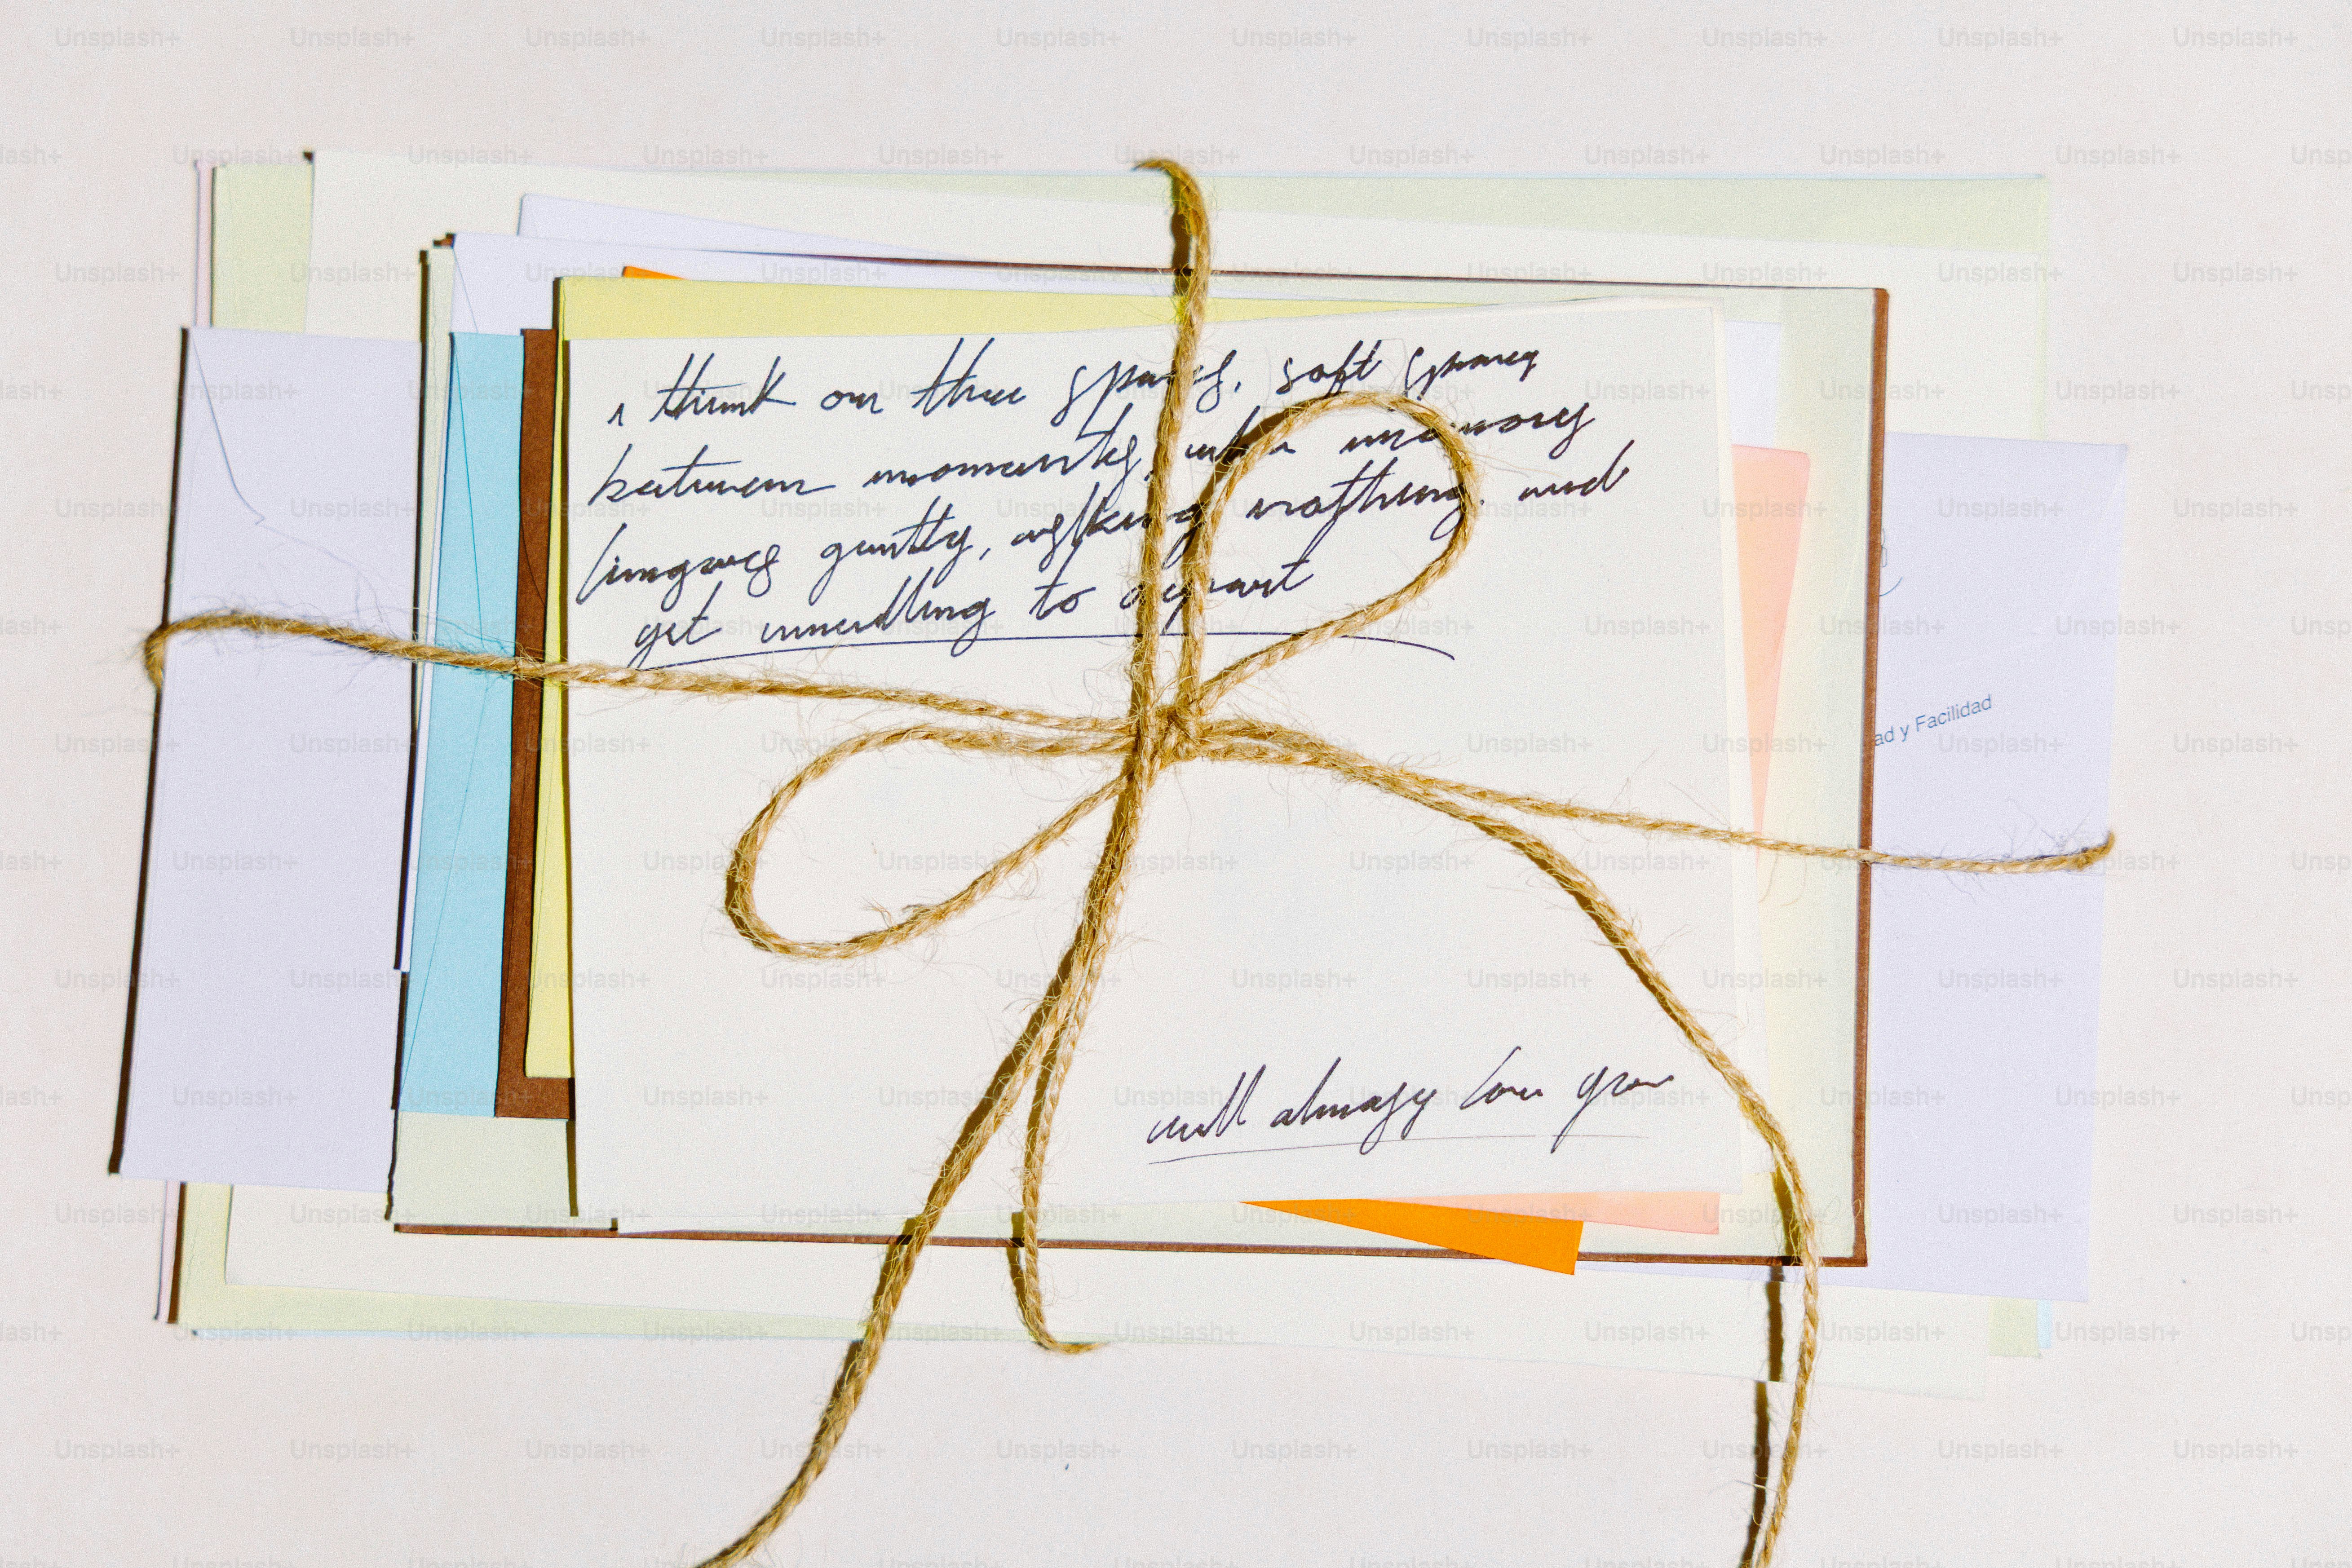 I think on these spaces, soft spaces
between moments, where memory
lingers gently, asking nothing, and
yet unwilling to depart
ad y Facilidad
will always love you
Unsplash+